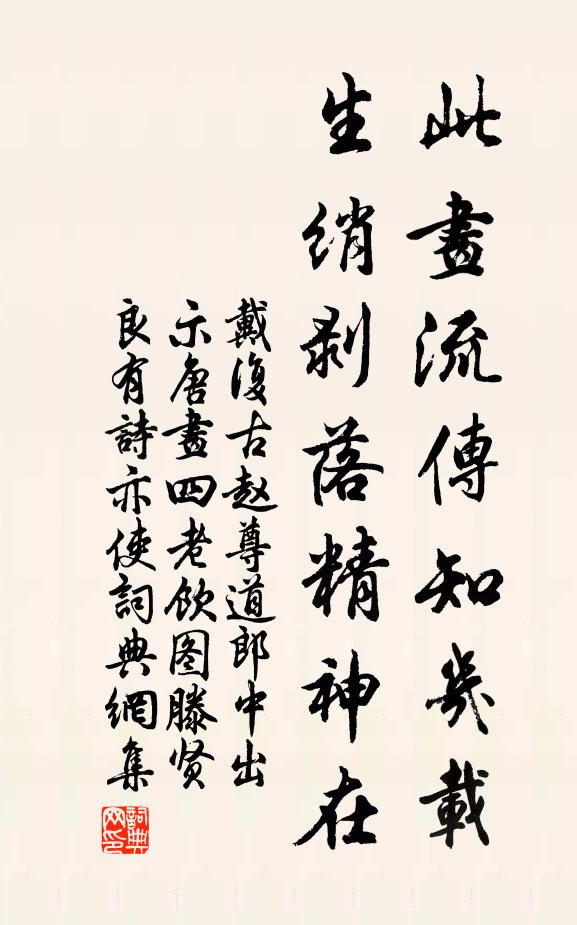 此畫流傳知幾載
生綃剥落精神在
戴復古赵尊道郎中出
示唐畫四老飲图滕贤
良有詩亦使詞典網集
詞典網印